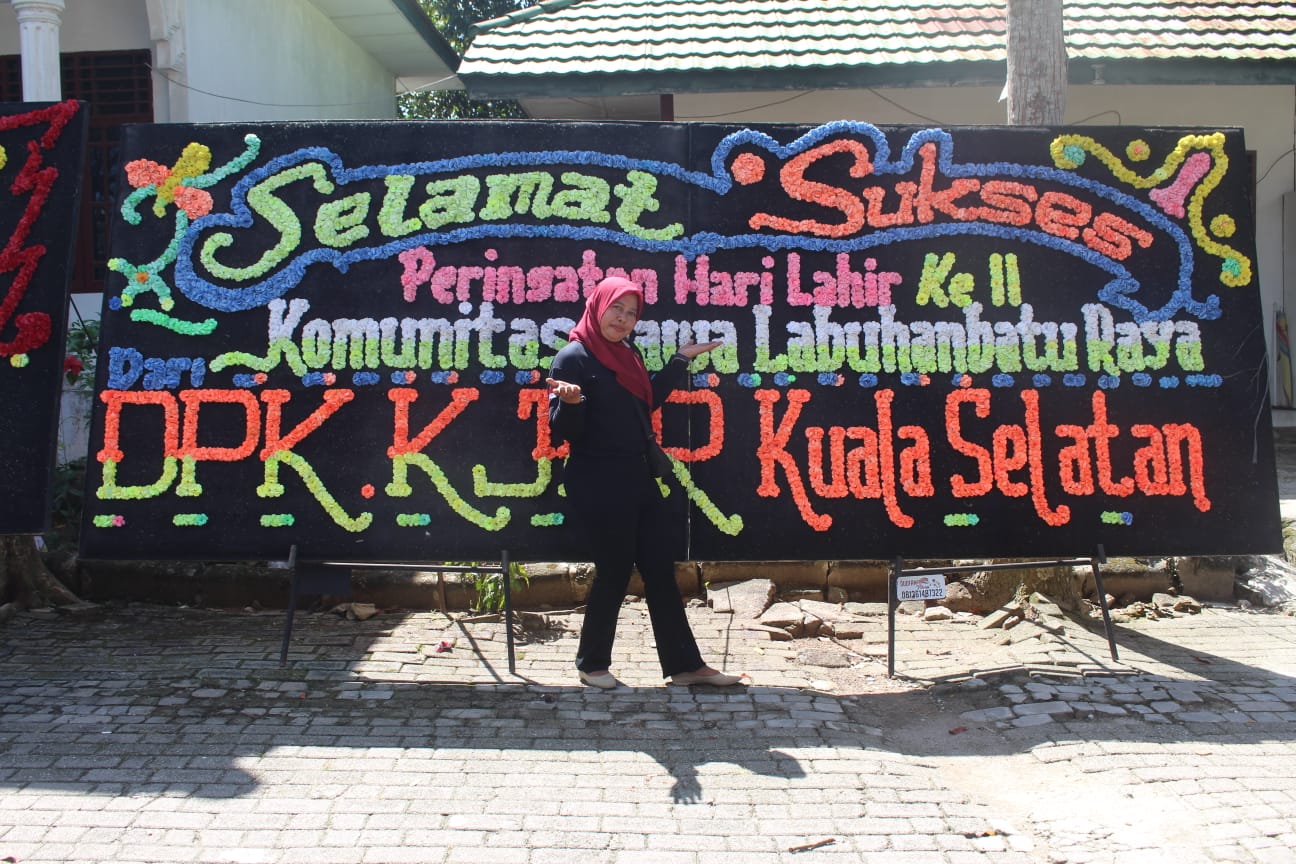 Selamat Sukses
Peringatan Hari Lahir Ke II
Komunitas Labuhanbatu Raya
Dari
DPK.KJR Kuala Selatan
081361487322